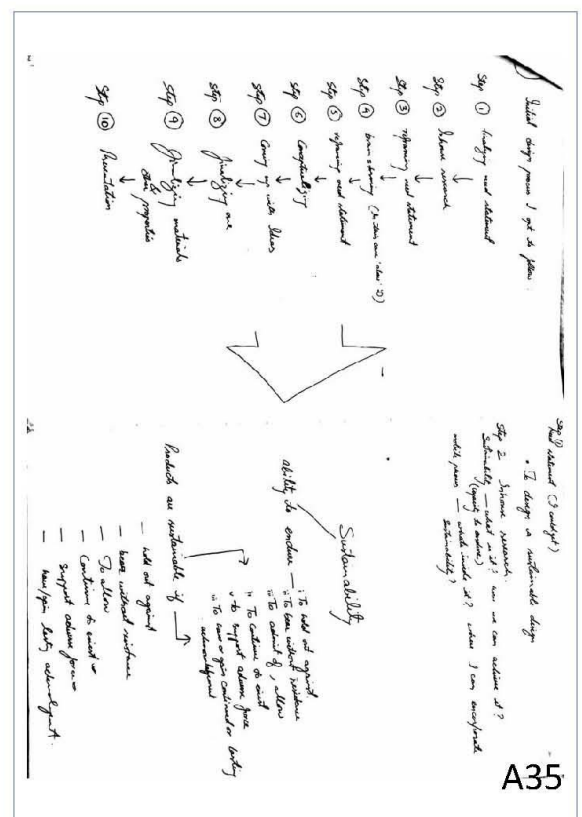 Initial design process I opt to follow.
Step ① Analyzing need statement
Step ② Inhouse research
Step ③ reframing need statement
Step ④ brain storming
Step ⑤ reframing need statement
Step ⑥ Conceptualizing
Step ⑦ Coming up with Ideas
Step ⑧ finalizing one
Step ⑨ finalizing materials
& other properties
Step ⑩ Presentation
Step ①
Need statement
• To design a sustainable design
Step 2 Inhouse research.
Sustainability — what is it? how we can achieve it?
(capacity to endure)
whole process — whats inside it? where I can encorporate
Sustainability?
Sustainability
ability to endure — i To hold out against
ii To bear without resistance
iii To admit of, allow
iv To continue to exist
v to support adverse force
vi To have or gain continued or lasting
Products are sustainable if
— hold out against
— bear without resistance
— To allow
— Continue to exist
— support adverse force
— have/gain lasting
A35